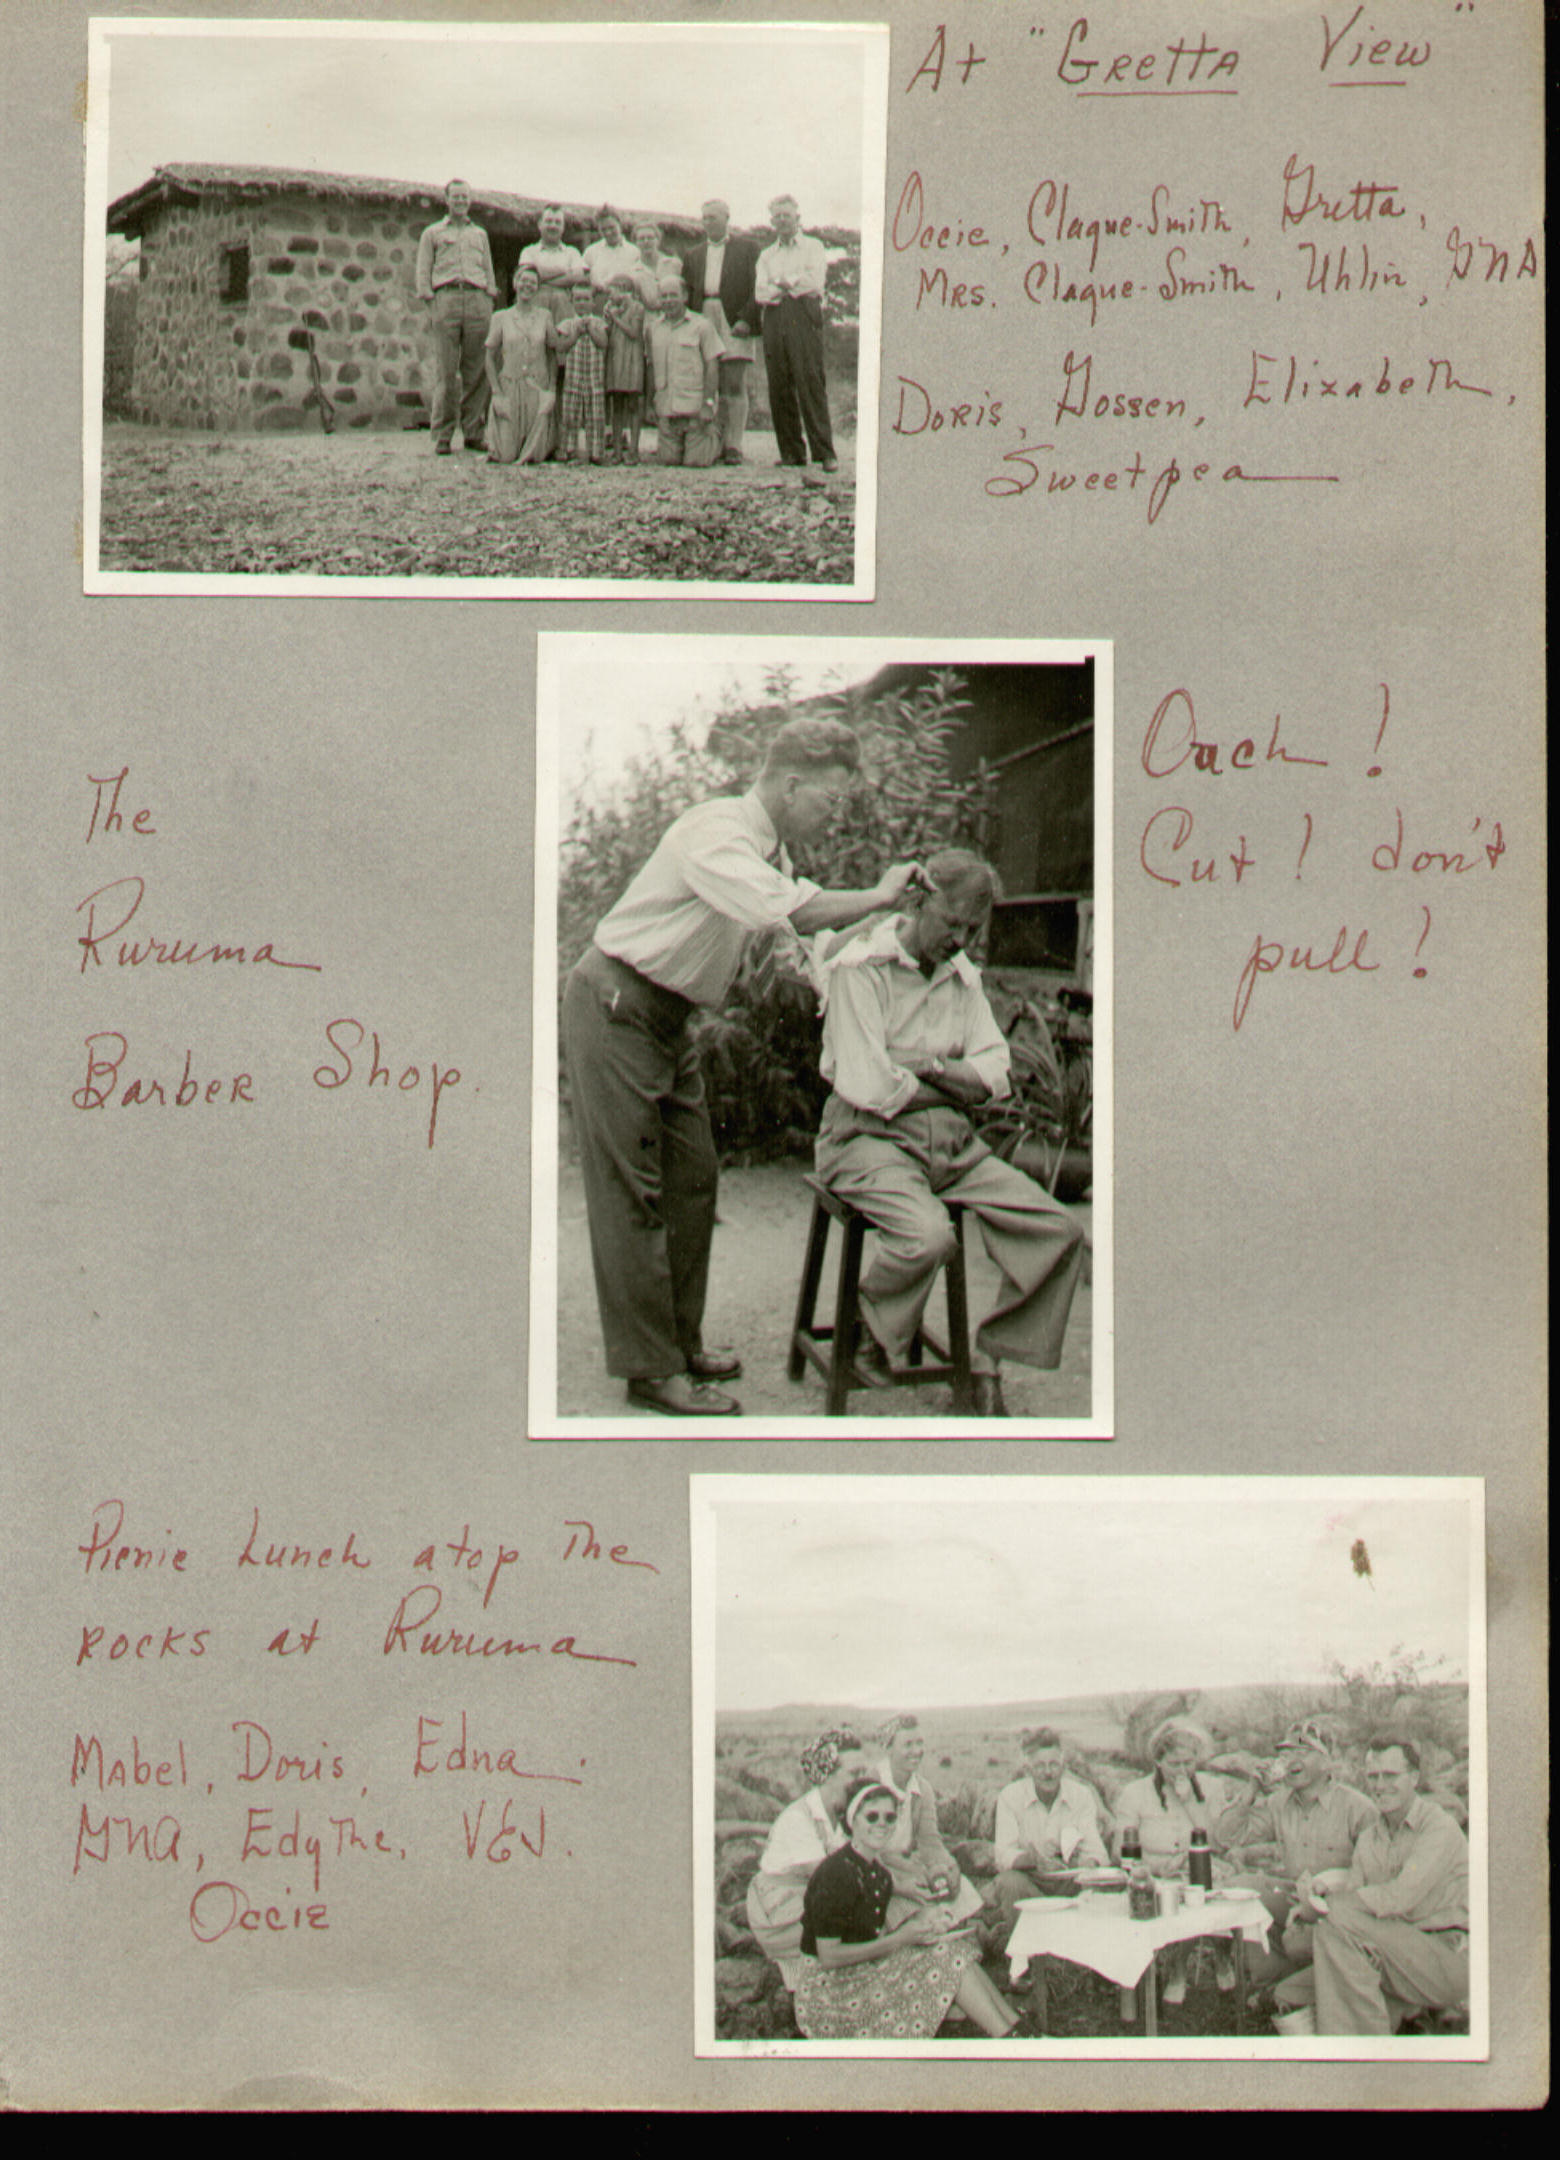 At "Gretta View"
Occie, Claque-Smith, Gretta,
Mrs. Claque-Smith, Uhlin, GNA
Doris, Gossen, Elizabeth,
Sweetpea
The
Ruruma
Barber Shop.
Ouch!
Cut! don't
pull!
Picnic Lunch atop the
rocks at Ruruma
Mabel, Doris, Edna.
GNA, Edythe, VEJ.
Occie